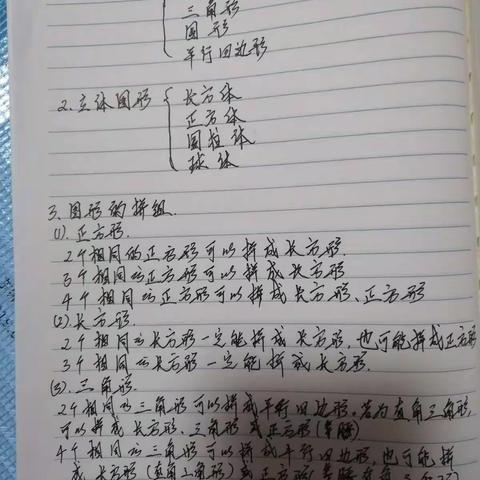 三角形
圆形
平行四边形
2.立体图形 长方体
正方体
圆柱体
球体
3.图形的拼组.
(1).正方形.
2个相同的正方形可以拼成长方形.
3个相同的正方形可以拼成长方形
4个相同的正方形可以拼成长方形、正方形
(2).长方形.
2个相同的长方形一定能拼成长方形,也可能拼成正方形
3个相同的长方形一定能拼成长方形.
(3).三角形.
2个相同的三角形可以拼成平行四边形。若为直角三角形,
可以拼成长方形、三角形或正方形(等腰)
4个相同的三角形可以拼成平行四边形,也可能拼
成长方形(直角三角形)或正方形(等腰直角